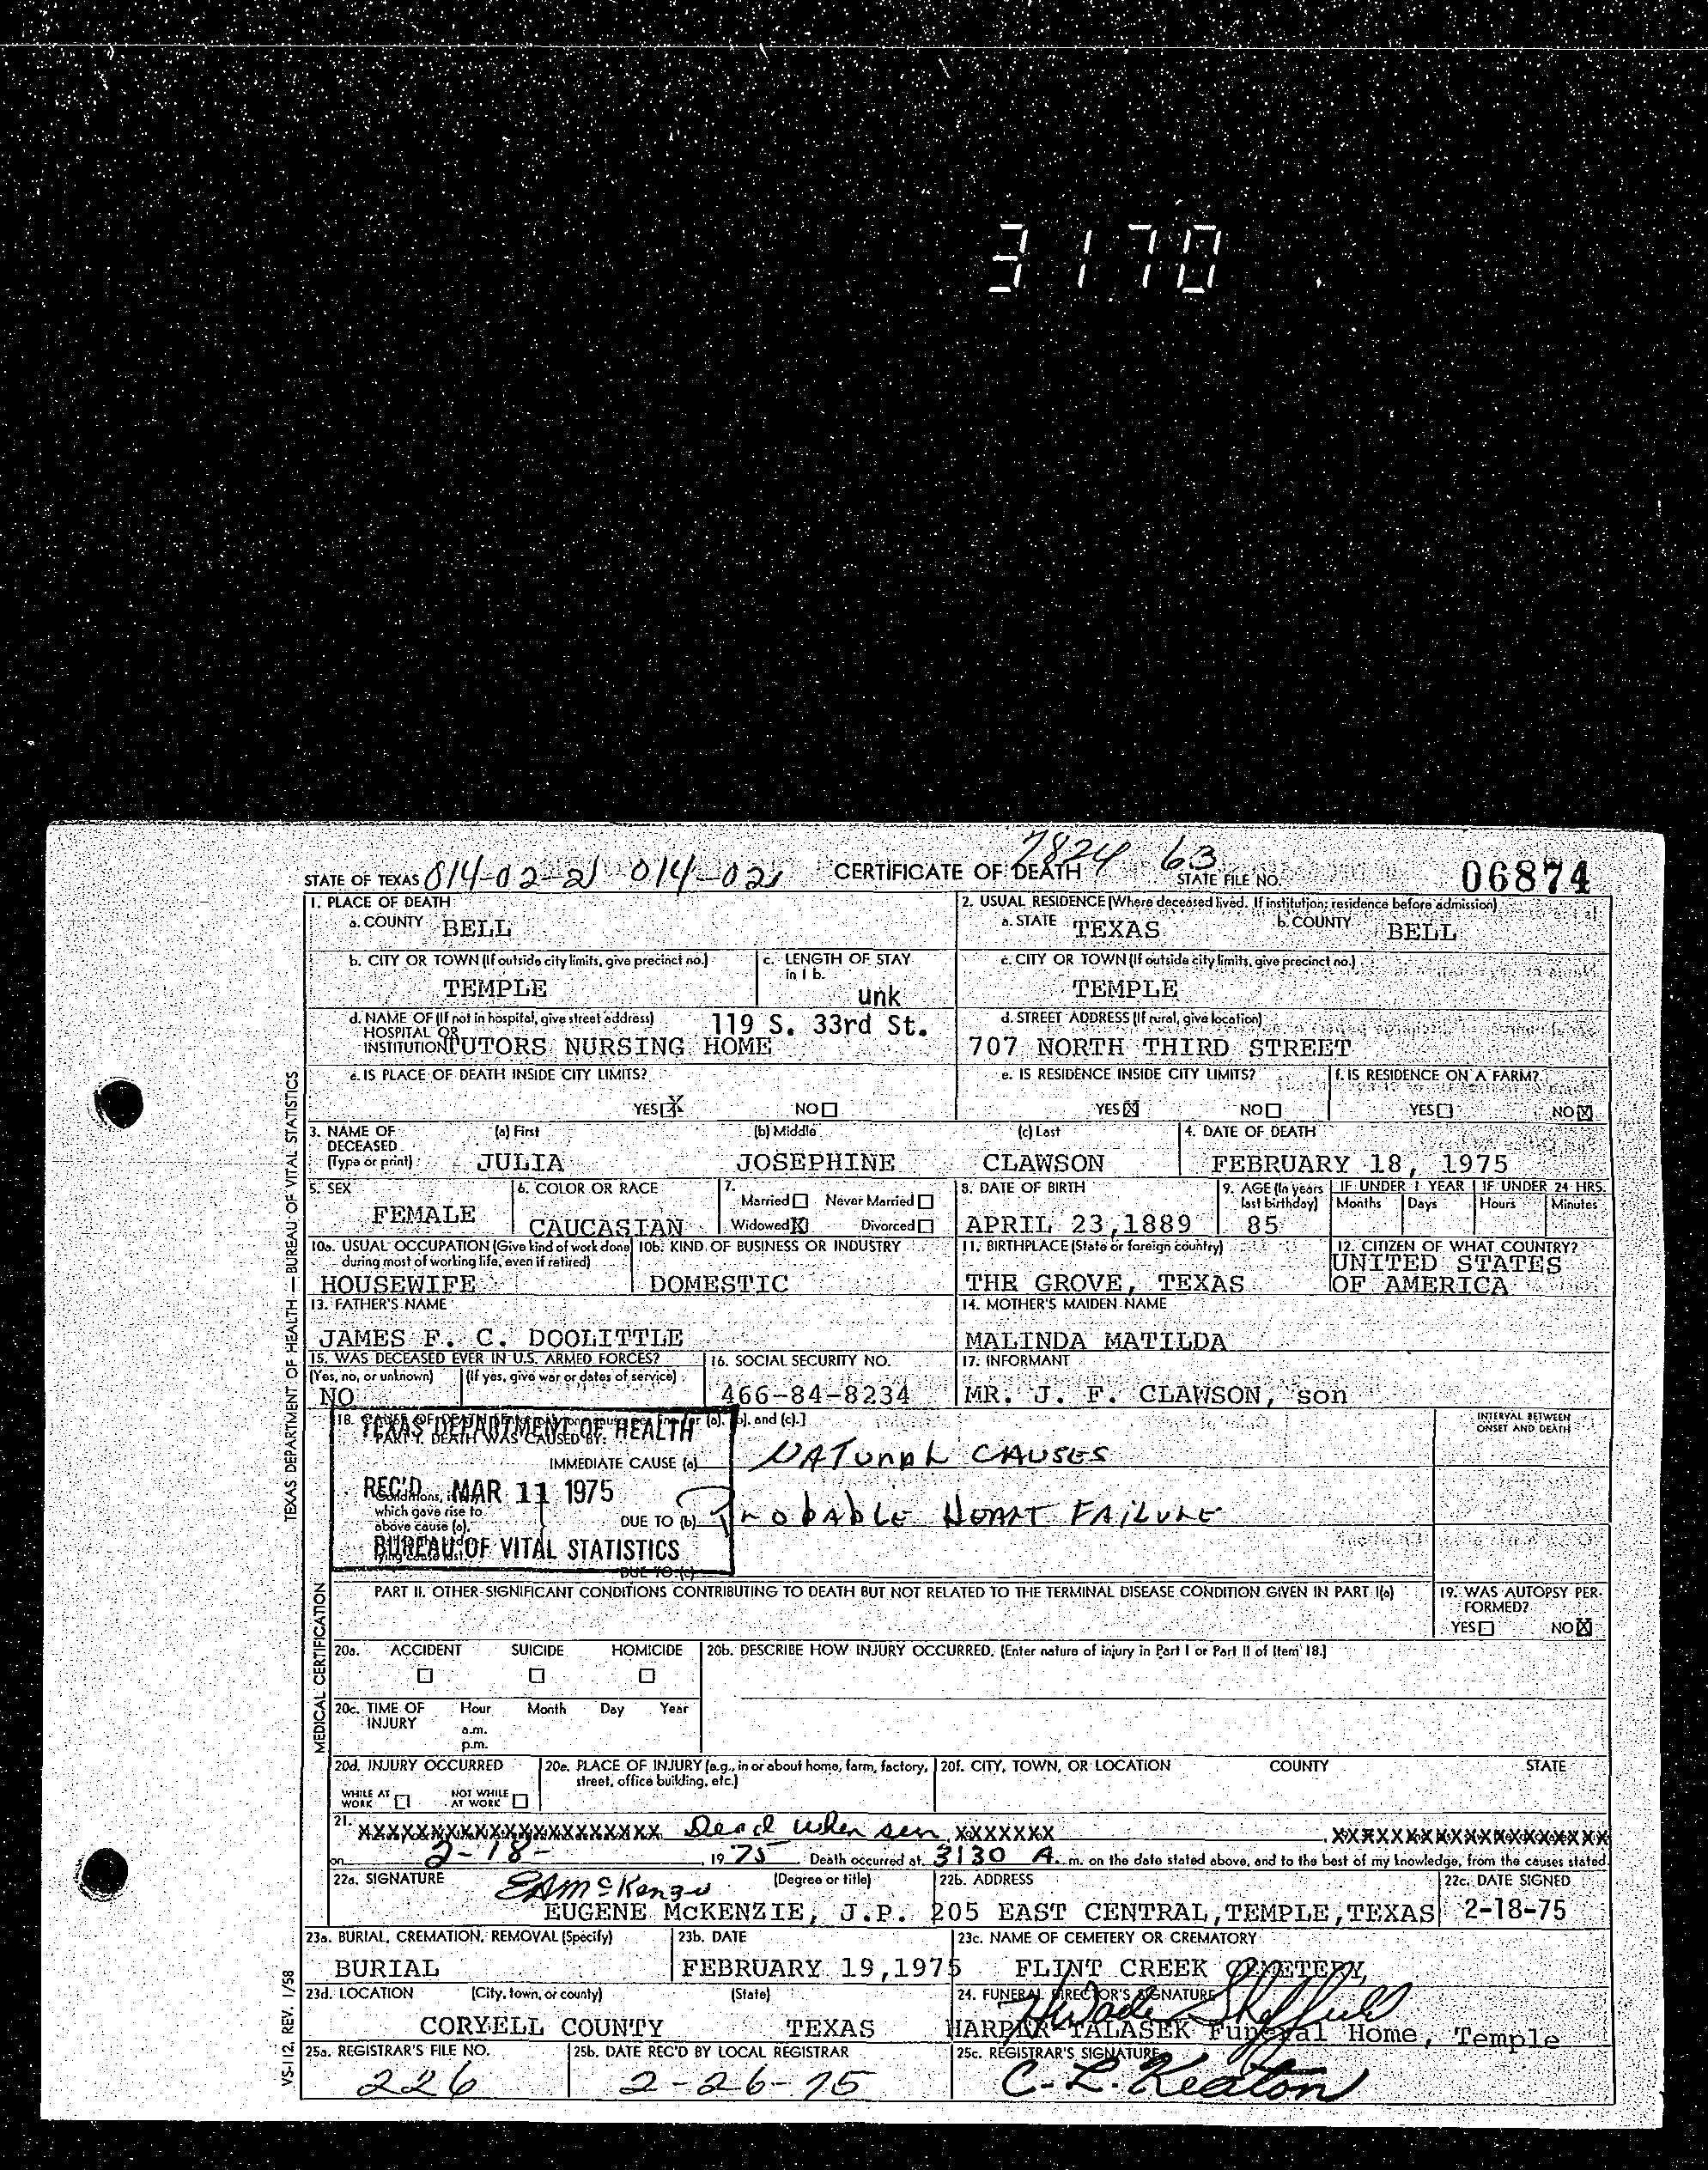 3170
7824 63
STATE OF TEXAS 014-02-21 014-021 CERTIFICATE OF DEATH STATE FILE NO. 06874
1. PLACE OF DEATH
a. COUNTY BELL
2. USUAL RESIDENCE (Where deceased lived. If institution: residence before admission)
a. STATE TEXAS b. COUNTY BELL
b. CITY OR TOWN (If outside city limits, give precinct no.) TEMPLE
c. LENGTH OF STAY in 1 b. unk
c. CITY OR TOWN (If outside city limits, give precinct no.) TEMPLE
d. NAME OF (If not in hospital, give street address) 119 S. 33rd St.
HOSPITAL OR
INSTITUTION TUTORS NURSING HOME
d. STREET ADDRESS (If rural, give location)
707 NORTH THIRD STREET
e. IS PLACE OF DEATH INSIDE CITY LIMITS?
YES X NO
e. IS RESIDENCE INSIDE CITY LIMITS?
YES X NO
f. IS RESIDENCE ON A FARM?
YES NO X
3. NAME OF DECEASED (Type or print)
(a) First JULIA
(b) Middle JOSEPHINE
(c) Last CLAWSON
4. DATE OF DEATH
FEBRUARY 18, 1975
5. SEX
FEMALE
6. COLOR OR RACE
CAUCASIAN
7. Married Never Married
Widowed X Divorced
8. DATE OF BIRTH
APRIL 23, 1889
9. AGE (In years last birthday) 85
IF UNDER 1 YEAR Months Days
IF UNDER 24 HRS. Hours Minutes
10a. USUAL OCCUPATION (Give kind of work done during most of working life, even if retired)
HOUSEWIFE
10b. KIND OF BUSINESS OR INDUSTRY
DOMESTIC
11. BIRTHPLACE (State or foreign country)
THE GROVE, TEXAS
12. CITIZEN OF WHAT COUNTRY?
UNITED STATES
OF AMERICA
13. FATHER'S NAME
JAMES F. C. DOOLITTLE
14. MOTHER'S MAIDEN NAME
MALINDA MATILDA
15. WAS DECEASED EVER IN U.S. ARMED FORCES?
(Yes, no, or unknown) (If yes, give war or dates of service)
NO
16. SOCIAL SECURITY NO.
466-84-8234
17. INFORMANT
MR. J. F. CLAWSON, son
18. CAUSE OF DEATH [Enter only one cause per line for (a), (b), and (c).]
PART I. DEATH WAS CAUSED BY:
TEXAS DEPARTMENT OF HEALTH
REC'D MAR 11 1975
BUREAU OF VITAL STATISTICS
INTERVAL BETWEEN ONSET AND DEATH
IMMEDIATE CAUSE (a) NATURAL CAUSES
Conditions, if any, which gave rise to above cause (a),
lying cause last.
DUE TO (b) PROBABLE HEART FAILURE
DUE TO (c)
PART II. OTHER SIGNIFICANT CONDITIONS CONTRIBUTING TO DEATH BUT NOT RELATED TO THE TERMINAL DISEASE CONDITION GIVEN IN PART I(a)
19. WAS AUTOPSY PERFORMED?
YES NO X
20a. ACCIDENT SUICIDE HOMICIDE
20b. DESCRIBE HOW INJURY OCCURRED. (Enter nature of injury in Part I or Part II of Item 18.)
20c. TIME OF INJURY Hour Month Day Year
a.m.
p.m.
20d. INJURY OCCURRED
WHILE AT WORK NOT WHILE AT WORK
20e. PLACE OF INJURY (e.g., in or about home, farm, factory, street, office building, etc.)
20f. CITY, TOWN, OR LOCATION COUNTY STATE
21. XXXXXXXXXXXXXXXXXXXXXXX Dead when seen XXXXXXX XXXXXXXXXXXXXXXXXXXX
on 2-18- 1975 Death occurred at 3:30 A. m. on the date stated above, and to the best of my knowledge, from the causes stated.
22a. SIGNATURE EA McKenzie (Degree or title)
EUGENE McKENZIE, J.P.
22b. ADDRESS
205 EAST CENTRAL, TEMPLE, TEXAS
22c. DATE SIGNED
2-18-75
23a. BURIAL, CREMATION, REMOVAL (Specify)
BURIAL
23b. DATE
FEBRUARY 19, 1975
23c. NAME OF CEMETERY OR CREMATORY
FLINT CREEK CEMETERY
23d. LOCATION (City, town, or county) (State)
CORYELL COUNTY TEXAS
24. FUNERAL DIRECTOR'S SIGNATURE
Sheffield
HARPER TALASEK Funeral Home, Temple
25a. REGISTRAR'S FILE NO.
226
25b. DATE REC'D BY LOCAL REGISTRAR
2-26-75
25c. REGISTRAR'S SIGNATURE
C. L. Keaton
TEXAS DEPARTMENT OF HEALTH — BUREAU OF VITAL STATISTICS
MEDICAL CERTIFICATION
VS-112, REV. 1/58